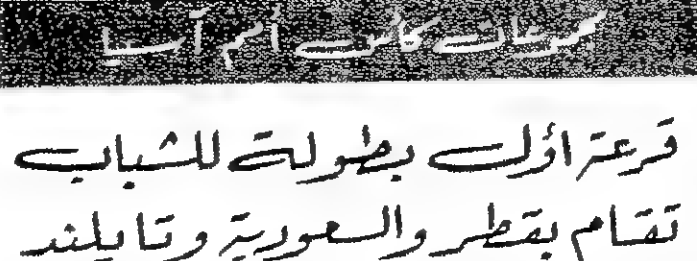 مجموعات كأس أمم آسيا
قرعة اؤل بطولة للشباب
تقام بقطر والسعودية وتايلند